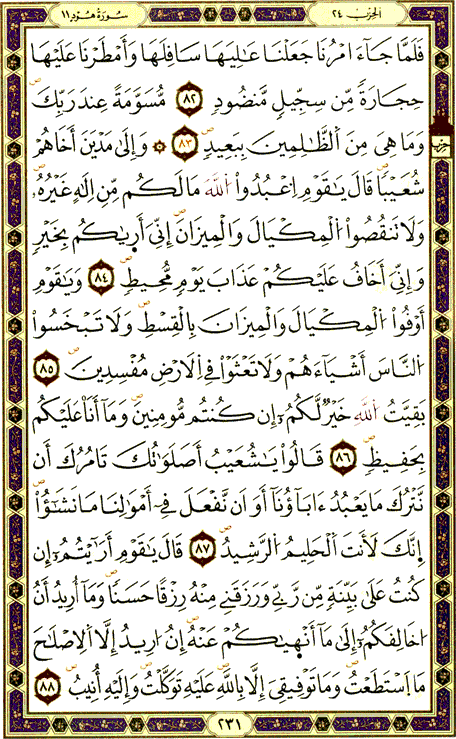 الحزب ٢٤
سُورَةُ هُود ١١
فَلَمَّا جَآءَ امْرُنَا جَعَلْنَا عَٰلِيَهَا سَافِلَهَا وَأَمْطَرْنَا عَلَيْهَا
حِجَارَةً مِّن سِجِّيلٖ مَّنضُودٖ ٨٢ مُّسَوَّمَةً عِندَ رَبِّكَ
وَمَا هِيَ مِنَ اَلظَّٰلِمِينَ بِبَعِيدٖ ٨٣ ۞ وَإِلَىٰ مَدْيَنَ أَخَاهُمْ
حزب
شُعَيْبٗا قَالَ يَٰقَوْمِ اِ۟عْبُدُوا۟ اُ۬للَّهَ مَا لَكُم مِّنِ اِلَٰهٍ غَيْرُهُۥ
وَلَا تَنقُصُوا۟ اُ۬لْمِكْيَالَ وَالْمِيزَانَ إِنِّيَ أَرَىٰكُم بِخَيْرٖ
وَإِنِّيَ أَخَافُ عَلَيْكُمْ عَذَابَ يَوْمٖ مُّحِيطٖ ٨٤ وَيَٰقَوْمِ
أَوْفُوا۟ اُ۬لْمِكْيَالَ وَالْمِيزَانَ بِالْقِسْطِ وَلَا تَبْخَسُوا۟
اُ۬لنَّاسَ أَشْيَآءَهُمْ وَلَا تَعْثَوْا۟ فِي اِ۬لَارْضِ مُفْسِدِينَ ٨٥
بَقِيَّتُ اُ۬للَّهِ خَيْرٞ لَّكُمُۥٓ إِن كُنتُم مُّومِنِينَ وَمَآ أَنَا عَلَيْكُم
بِحَفِيظٖ ٨٦ قَالُوا۟ يَٰشُعَيْبُ أَصَلَوَٰتُكَ تَامُرُكَ أَن
نَّتْرُكَ مَا يَعْبُدُ ءَابَآؤُنَآ أَوَ اَن نَّفْعَلَ فِيٓ أَمْوَٰلِنَا مَا نَشَٰٓؤُا۟
إِنَّكَ لَأَنتَ اَ۬لْحَلِيمُ اُ۬لرَّشِيدُ ٨٧ قَالَ يَٰقَوْمِ أَرَٰيْتُمُۥٓ إِن
كُنتُ عَلَىٰ بَيِّنَةٖ مِّن رَّبِّي وَرَزَقَنِي مِنْهُ رِزْقًا حَسَنٗا وَمَآ أُرِيدُ أَنُ
ا۟خَالِفَكُمُۥٓ إِلَىٰ مَآ أَنْهَىٰكُمْ عَنْهُ إِنُ ا۟رِيدُ إِلَّا اَ۬لِاصْلَٰحَ
مَا اَ۪سْتَطَعْتُ وَمَا تَوْفِيقِيَ إِلَّا بِاللَّهِ عَلَيْهِ تَوَكَّلْتُ وَإِلَيْهِ أُنِيبُ ٨٨
٢٣١